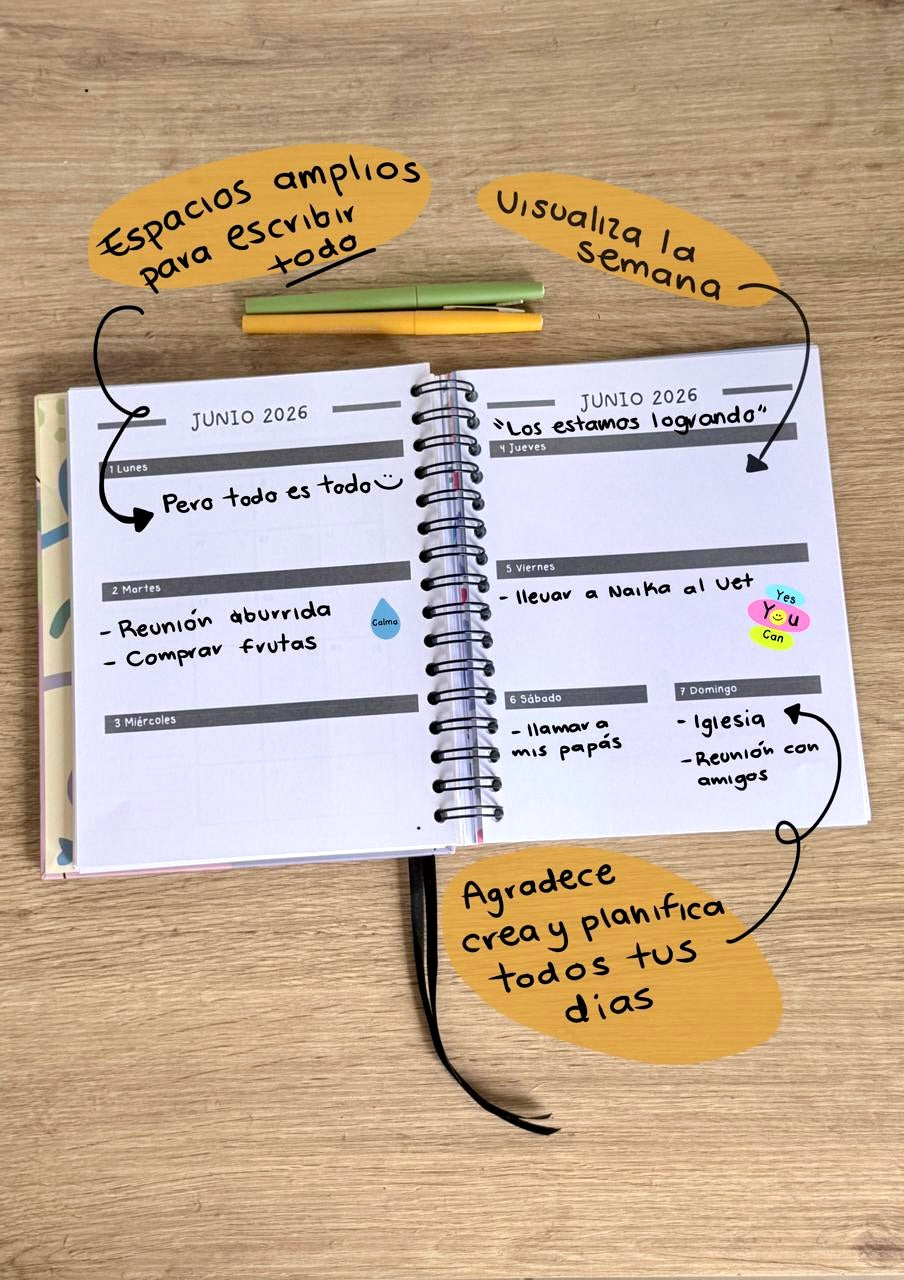 Espacios amplios
para escribir
todo
Visualiza la
semana
JUNIO 2026
1 Lunes
Pero todo es todo
2 Martes
- Reunión aburrida
- Comprar frutas
Calma
3 Miércoles
JUNIO 2026
"Los estamos logrando"
4 Jueves
5 Viernes
- llevar a Naika al vet
Yes
You
Can
6 Sábado
- llamar a
mis papás
7 Domingo
- Iglesia
- Reunión con
amigos
Agradece
crea y planifica
todos tus
dias